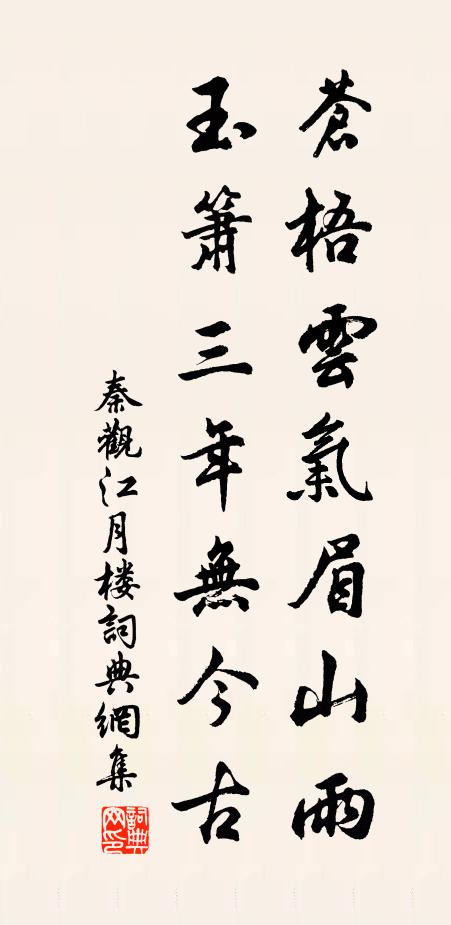 蒼梧雲氣眉山雨
玉簫三年無今古
秦觀江月楼詞典網集
詞典网印